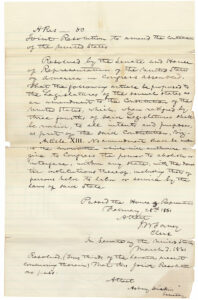 Joint Resolution to amend the Constitution
of the United States
Resolved by the Senate and House
of Representatives of the United States of
America in Congress assembled,
That the following article be proposed to
the Legislatures of the several States as
an amendment to the Constitution of the
United States, which, when ratified by
three fourths of said Legislatures shall
be valid, to all intents and purposes,
as part of the said Constitution, viz:
Article XIII. No amendment shall be made
to the Constitution which will authorize or
give to Congress the power to abolish or
interfere, within any State, with the
institutions thereof, including that of
persons held to labor or service by the
laws of said State.
Passed the House of Representatives
February 28th 1861
Attest
Clerk
In Senate of the United States
March 2, 1861
Resolved, (two thirds of the Senators present
concurring therein) That this Joint Resolution
pass
Attest